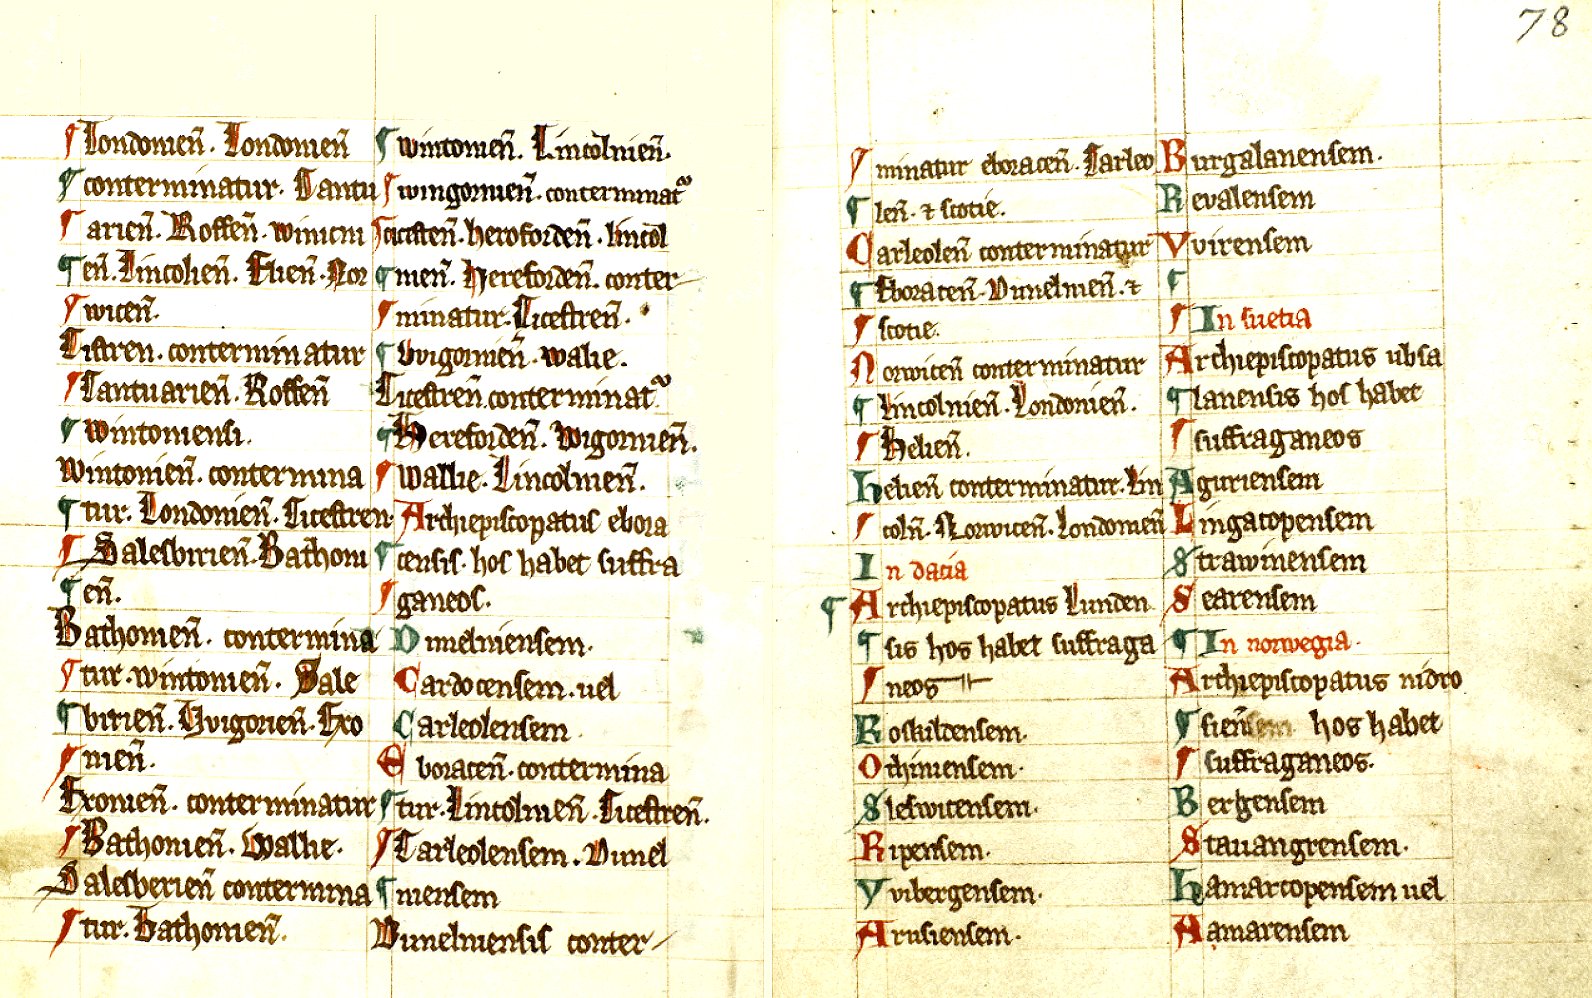 Londonien̄. Londonien̄
conterminatur. Cantu
arien̄. Roffen̄. winton
en̄. Lincolien̄. Elien̄. Nor
wicen̄.
Cistren. conterminatur
Cantuarien̄. Roffen̄
wintoniensi.
wintonien̄. contermina
tur. Londonien̄. Cicestren̄
Salesbirien̄. Bathoni
en̄.
Bathonien̄. contermina
tur. wintonien̄. Sale
birien̄. Gvigorien̄. Exo
nien̄.
Exonien̄. conterminatur
Bathonien̄. Wallie.
Salesberien̄ contermina
tur. bathonien̄.
wintonien̄. Lincolnien̄.
wingornien̄. conterminatᷣ
cicesten̄. heroforden̄. lincol
nien̄. Hereforden̄. conter
minatur. Cicestren̄.
Gvigornien̄. walie.
Cicestren̄. conterminatᷣ
Hereforden̄. Wigornien̄.
wallie. Lincolnien̄.
Archiepiscopatus ebora
censis. hos habet suffra
ganeos.
Dunelmensem.
Cardocensem. uel
Carleolensem
Eboracen̄. contermina
tur. Lincolnien̄. Cicestren̄.
Carleolensem. Dunel
mensem
Dunelmensis conter
78
minatur eboracen̄. Carleo
len̄. ⁊ scotie.
Carleolen̄ conterminatur
Eboracen̄. Dunelmen̄. ⁊
scotie.
Norwicen̄ conterminatur
Lincolnien̄. Londonien̄.
Helien̄.
Helien̄ conterminatur. Lin
coln̄. Norwicen̄. Londonien̄
In dacia
Archiepiscopatus Lunden
sis hos habet suffraga
neos
Roskildensem.
Othiniensem.
Sleswicensem.
Ripensem.
Yvibergensem.
Arusiensem.
Burgalanensem.
Revalensem
Vvirensem
In suetia
Archiepiscopatus ubsa
lanensis hos habet
suffraganeos
Aguriensem
Lingacopensem
Strawinensem
Scarensem
In norwegia.
Archiepiscopatus nidro
sien̄sem hos habet
suffraganeos.
Bergensem
Stauangrensem.
Hamarcopensem uel
Aamarensem